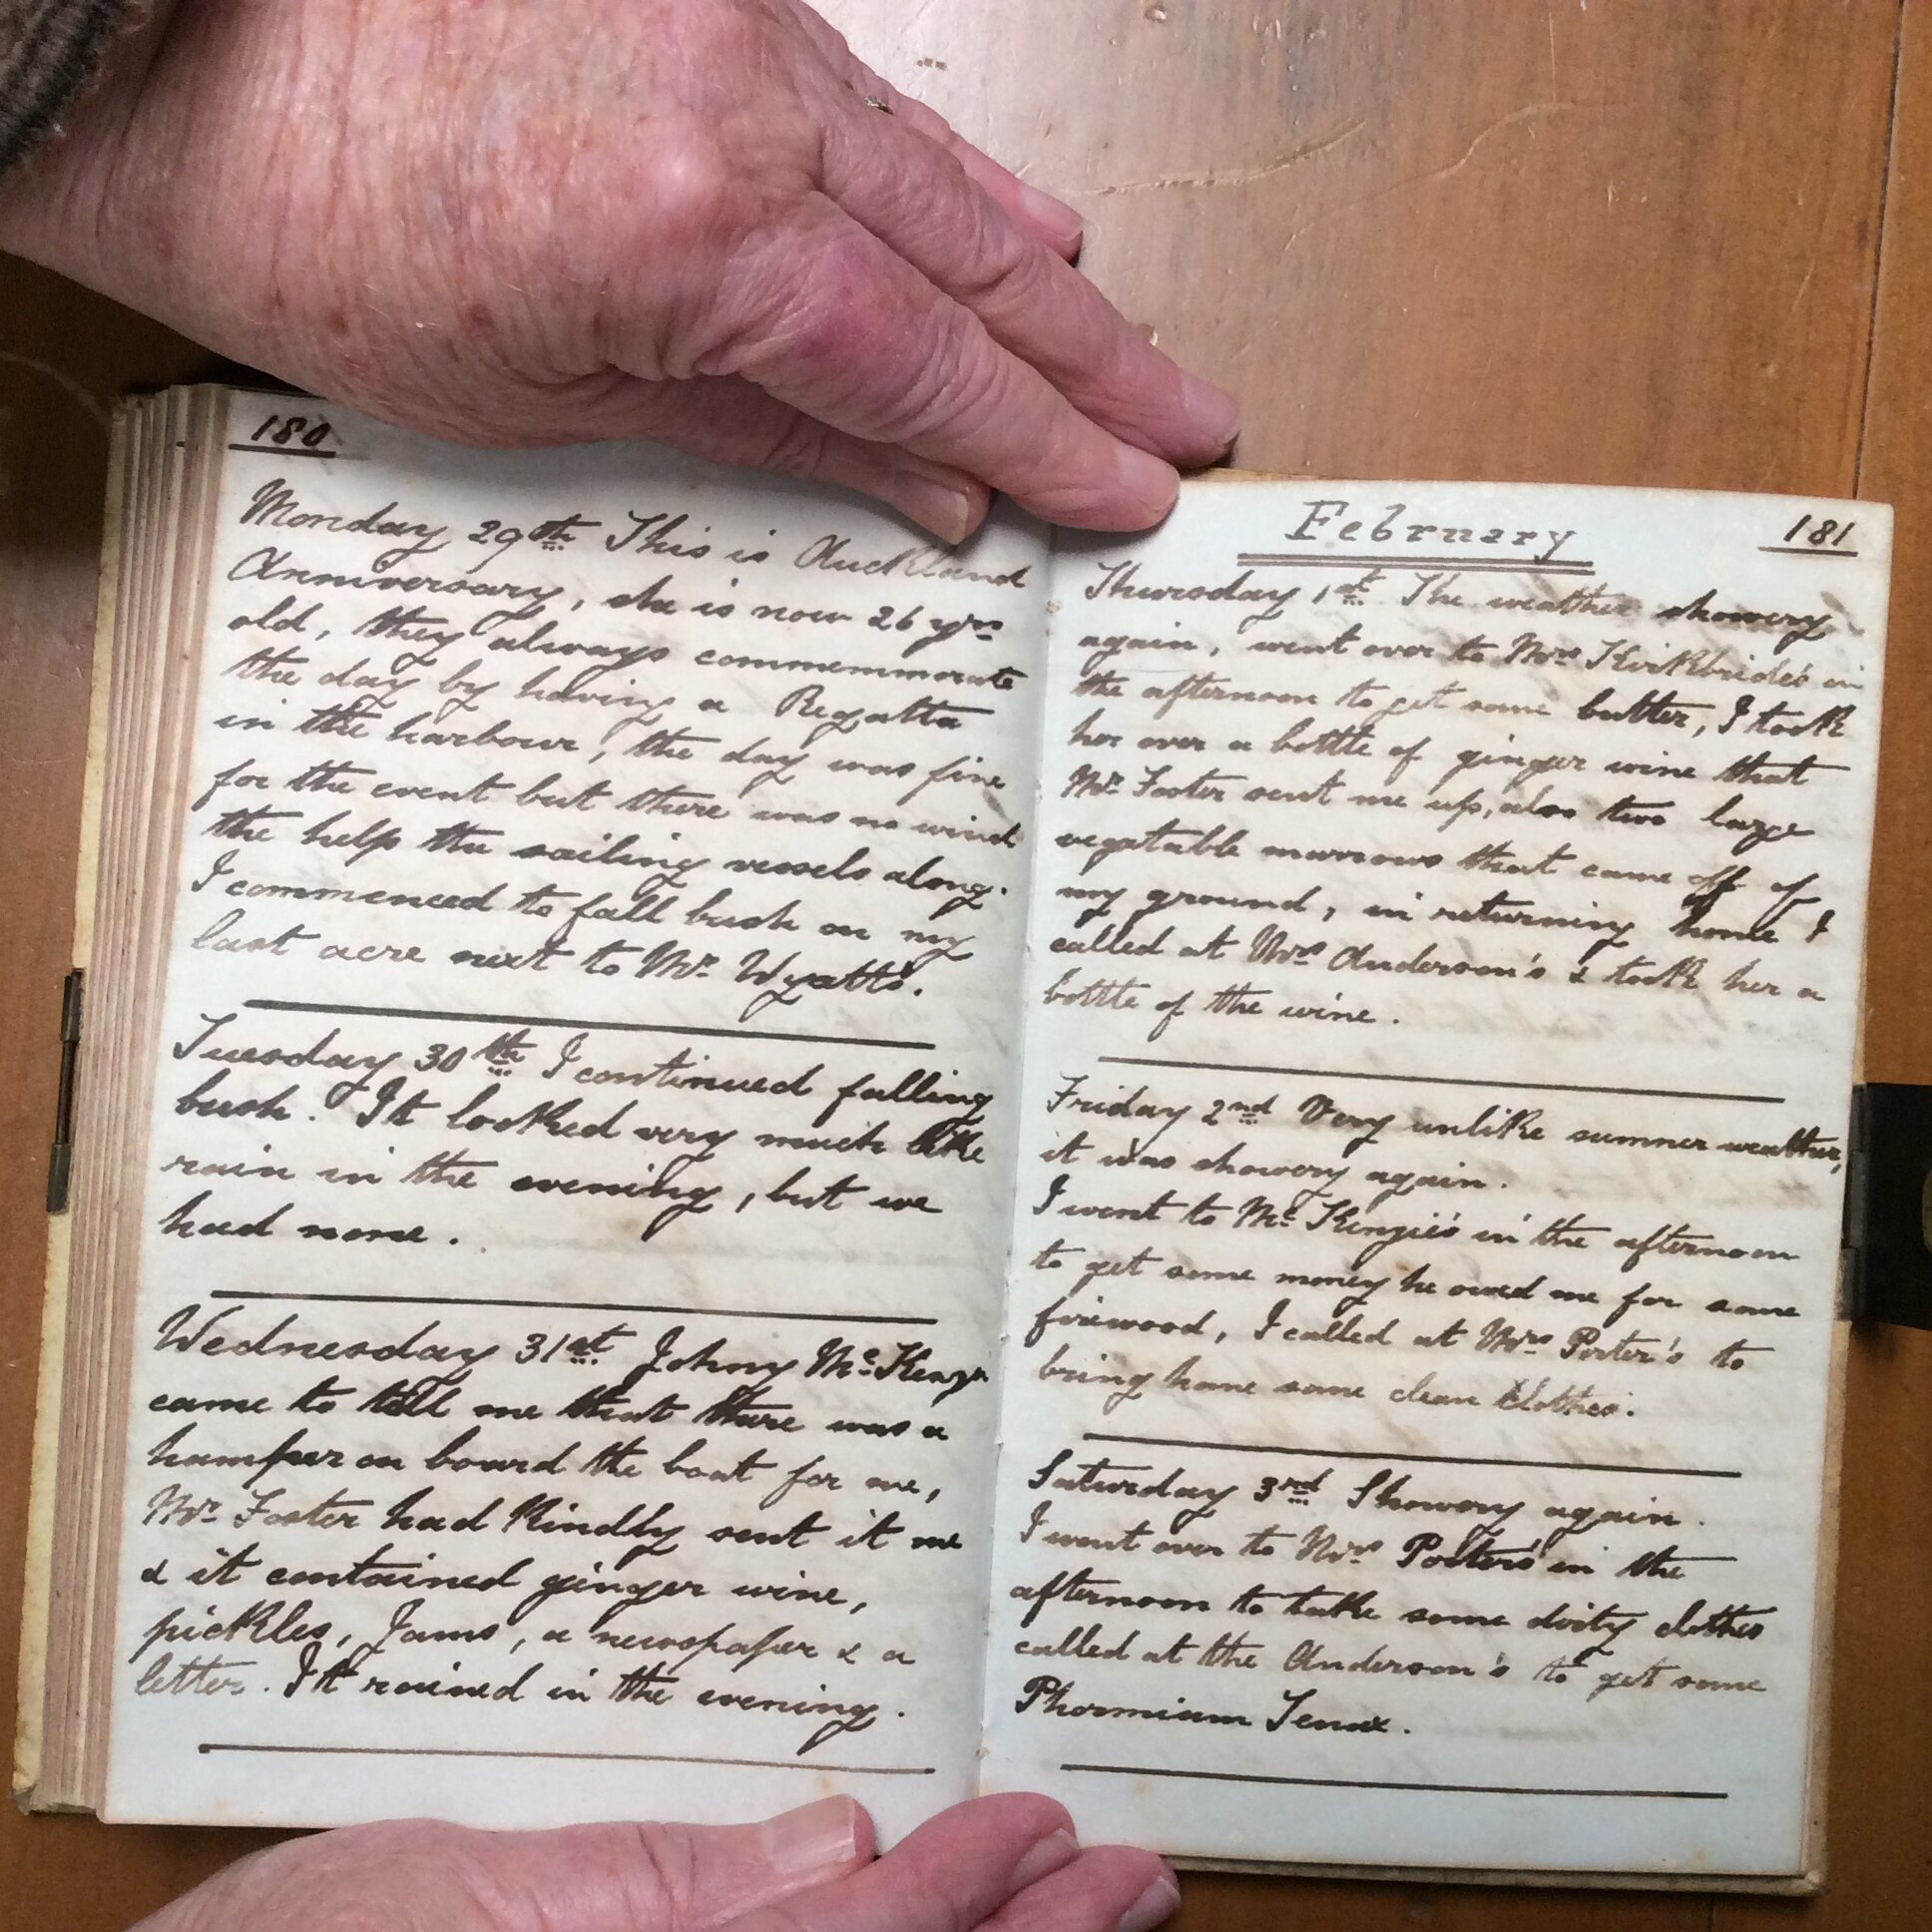 180
Monday 29th This is Auckland
Anniversary, she is now 26 yrs
old, they always commemmorate
the day by having a Regatta
in the harbour, the day was fine
for the event but there was no wind
the help the sailing vessels along.
I commenced to fall bush on my
last acre next to Mr. Wyatt's.
Tuesday 30th I continued falling
bush. It looked very much like
rain in the evening, but we
had none.
Wednesday 31st. Johny Mc. Kenzie
came to tell me that there was a
hamper on board the boat for me,
Mr. Foster had kindly sent it me
& it contained ginger wine,
pickles, Jams, a newspaper & a
letter. It rained in the evening.
February
181
Thursday 1st. The weather showery
again, went over to Mrs Kirkbride's in
the afternoon to get some butter, I took
her over a bottle of ginger wine that
Mr. Foster sent me up, also two large
vegatable marrows that came off of
my ground, in returning home I
called at Mrs Anderson's & took her a
bottle of the wine.
Friday 2nd Very unlike summer weather,
it was showery again.
I went to Mc. Kenzie's in the afternoon
to get some money he owed me for some
firewood, I called at Mrs Porter's to
bring home some clean clothes.
Saturday 3rd Showery again.
I went over to Mrs Porter's in the
afternoon to take some dirty clothes
called at the Anderson's to get some
Phormium Tenax.